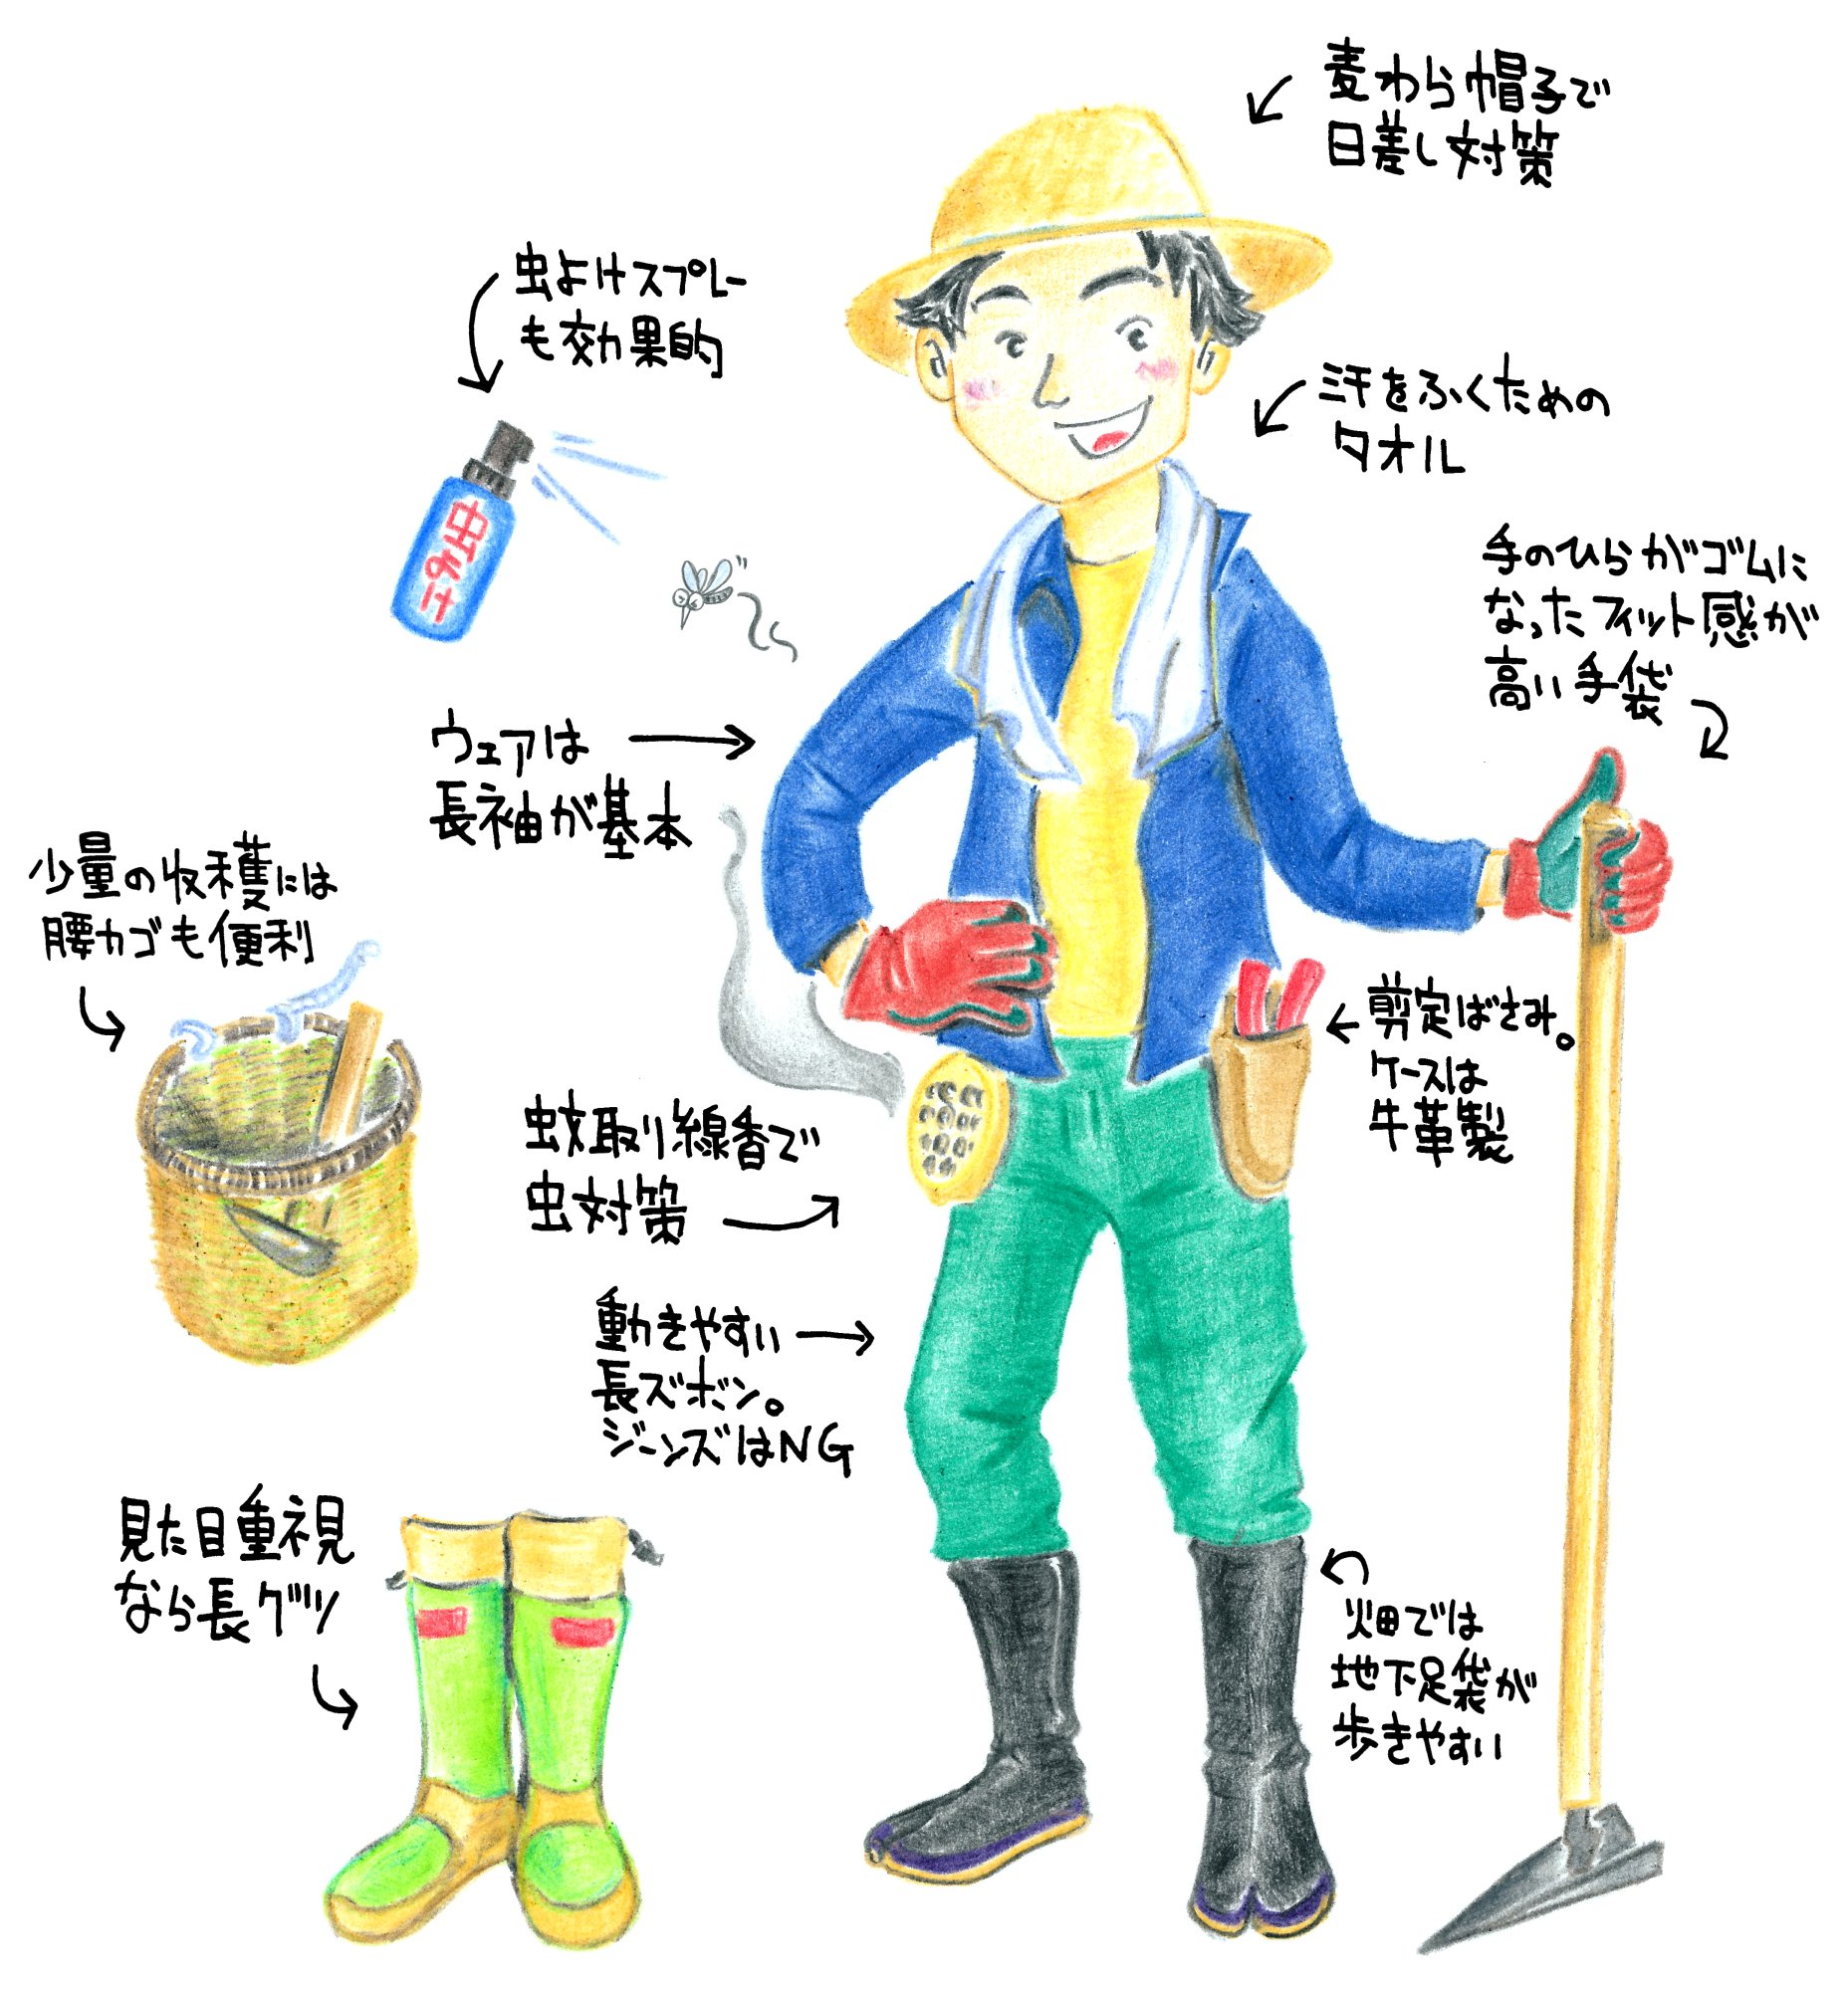 麦わら帽子で
日差し対策
虫よけスプレー
も効果的
虫よけ
汗をふくための
タオル
手のひらがゴムに
なったフィット感が
高い手袋
ウェアは
長袖が基本
少量の収穫には
腰カゴも便利
剪定ばさみ。
ケースは
牛革製
蚊取り線香で
虫対策
動きやすい
長ズボン。
ジーンズはNG
見た目重視
なら長グツ
畑では
地下足袋が
歩きやすい